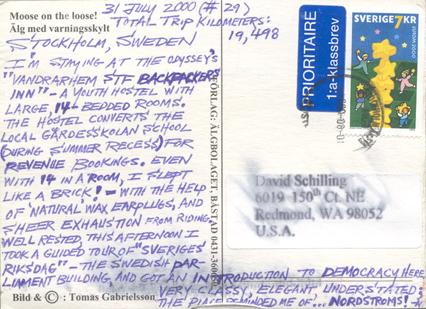 Moose on the loose!
Älg med varningsskylt
31 JULY 2000 (# 29)
TOTAL TRIP KILOMETERS:
19,498
STOCKHOLM, SWEDEN
I'M STAYING AT THE ODYSSEY'S
"VANDRARHEM STF BACKPACKERS
INN" - A YOUTH HOSTEL WITH
LARGE, 14-BEDDED ROOMS.
THE HOSTEL CONVERTS THE
LOCAL GÄRDESSKOLAN SCHOOL
(DURING SUMMER RECESS) FOR
REVENUE BOOKINGS. EVEN
WITH 14 IN A ROOM, I SLEPT
LIKE A BRICK! - WITH THE HELP
OF 'NATURAL' WAX EARPLUGS, AND
SHEER EXHAUSTION FROM RIDING.
WELL RESTED, THIS AFTERNOON I
TOOK A GUIDED TOUR OF "SVERIGES
RIKSDAG" - THE SWEDISH PAR-
LIAMENT BUILDING, AND GOT AN INTRODUCTION TO DEMOCRACY HERE.
VERY CLASSY, ELEGANT UNDERSTATED:
THE PLACE REMINDED ME OF... NORDSTROMS!
Bild & ©: Tomas Gabrielsson
FÖRLAG: ÄLGBOLAGET, BÅSTAD 0431-
PRIORITAIRE
1:a-klassbrev
SVERIGE 7 KR
EUROPA 2000
David Schilling
6019 150th Ct. NE
Redmond, WA 98052
U.S.A.